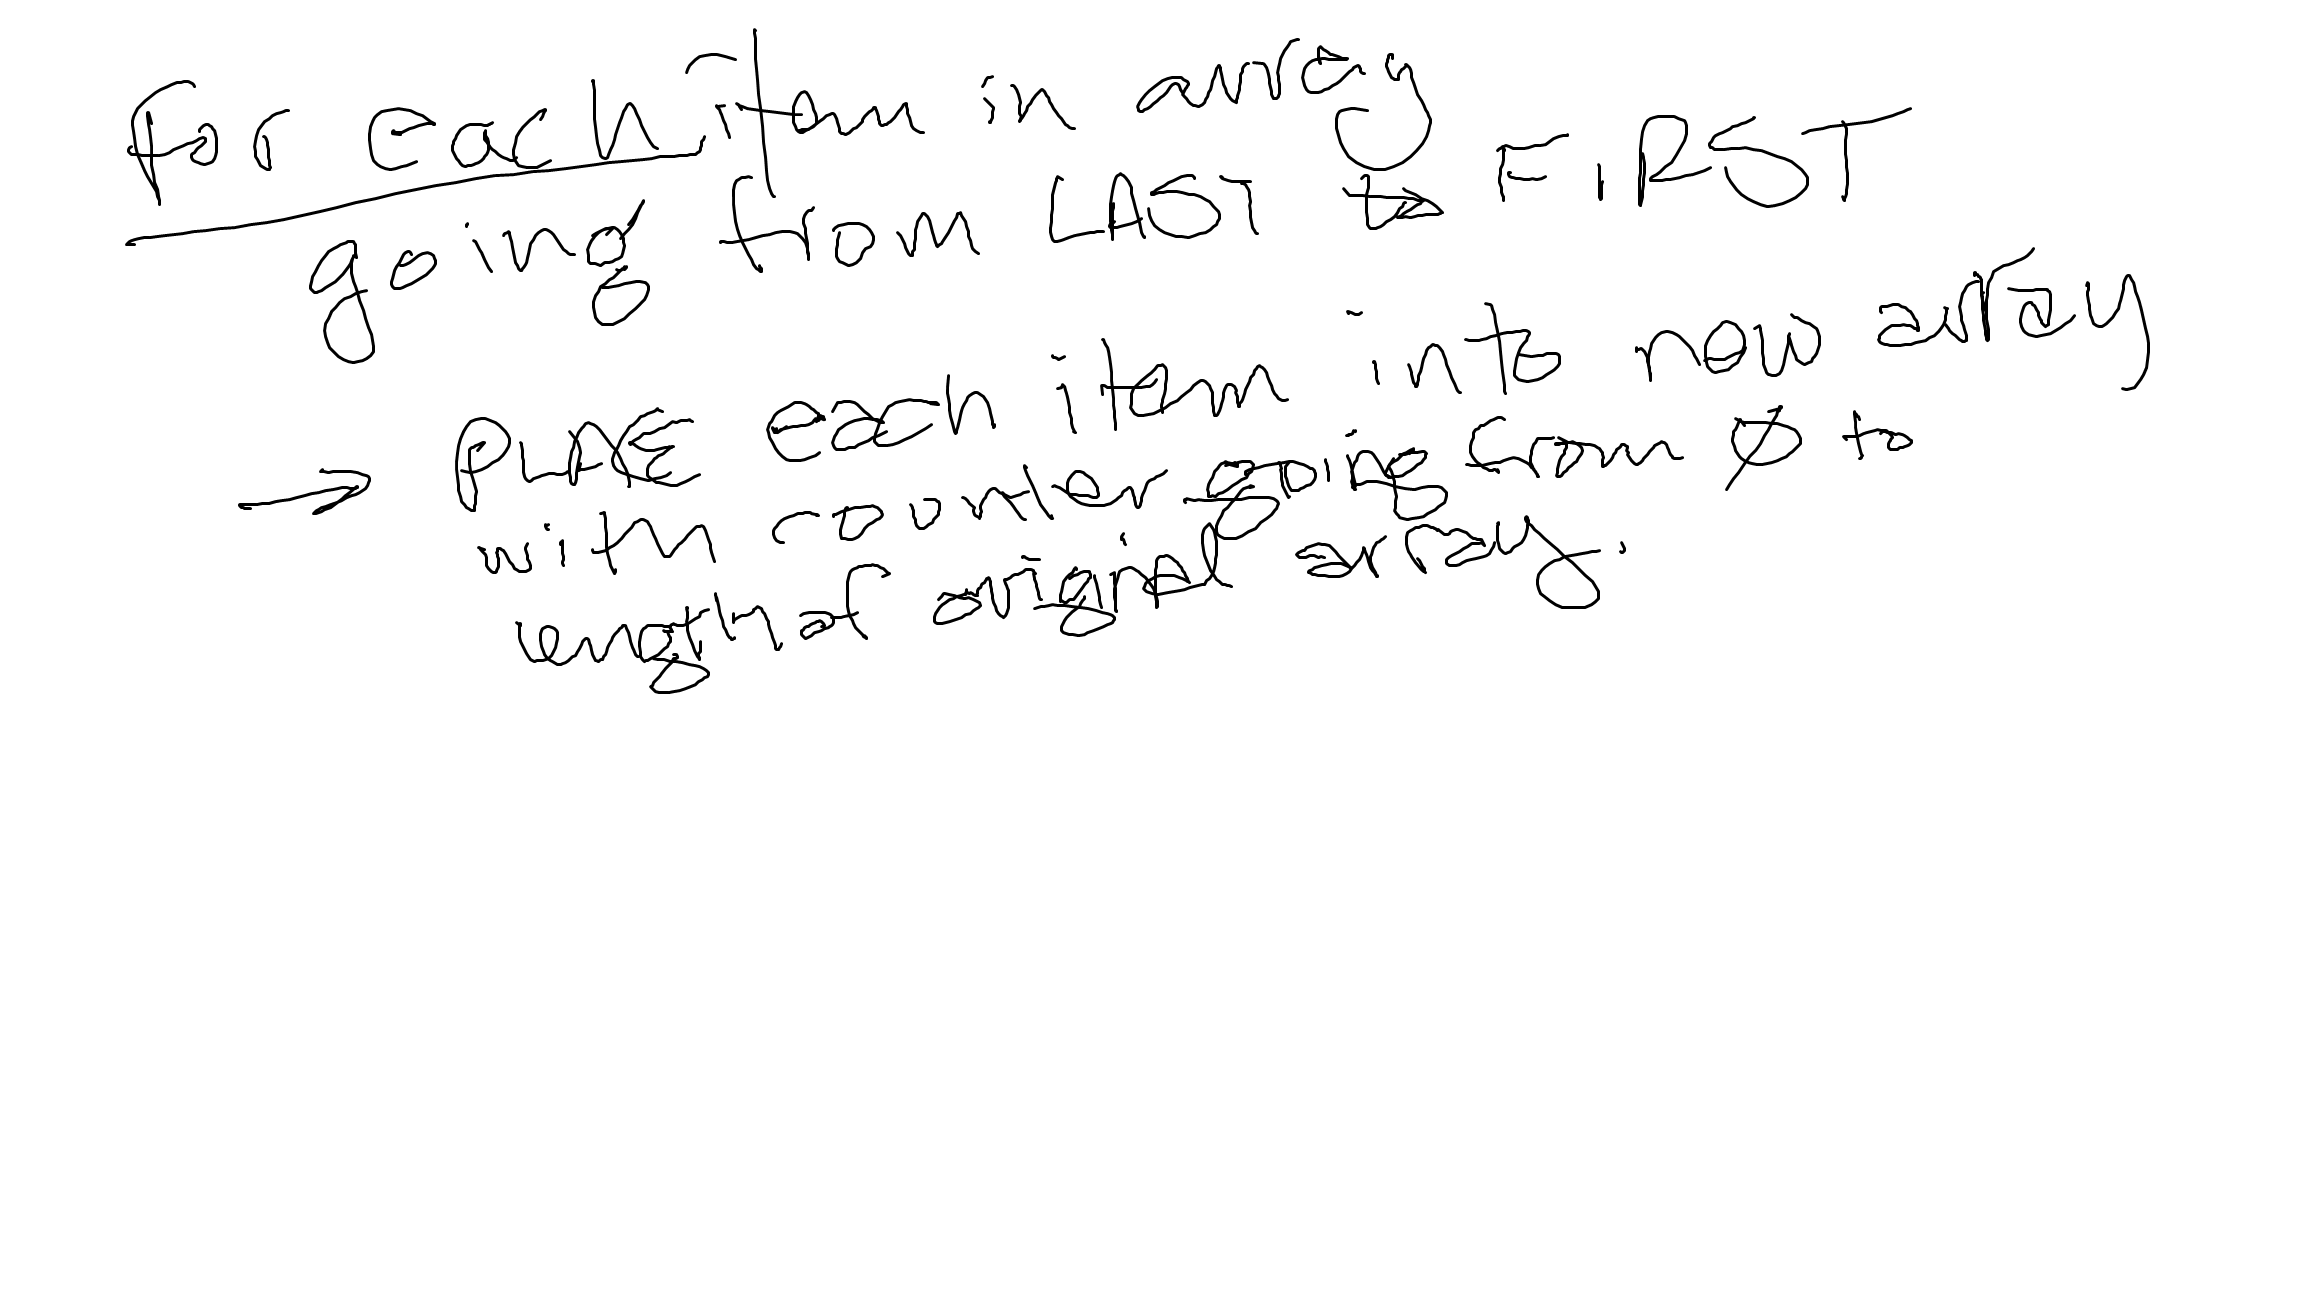 for each item in array
going from LAST to FIRST
→ PLACE each item into new array
with counter going from 0 to
length of original array.